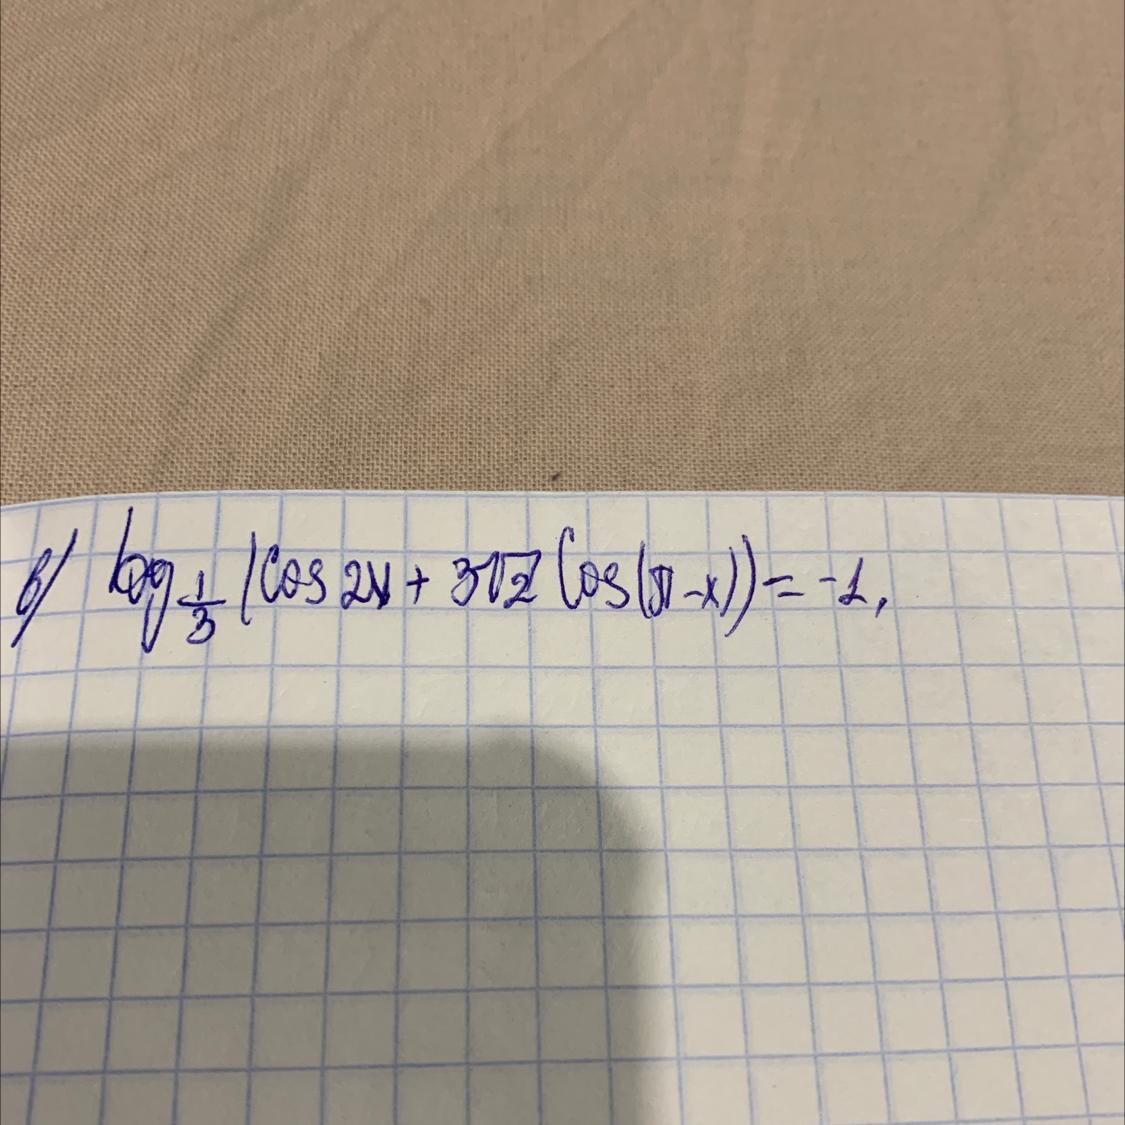 в) log_{1/3} (cos 2x + 3√2 cos(π-x)) = -1,